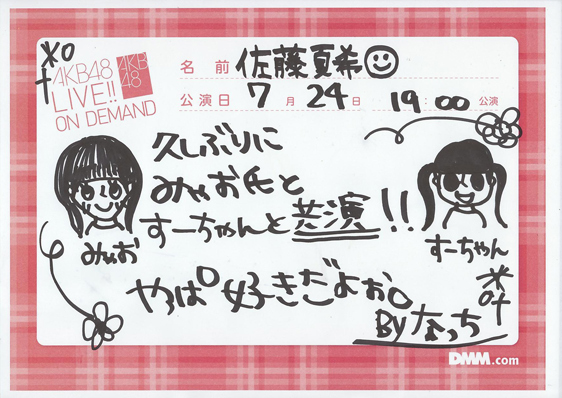 AKB48
LIVE!!
ON DEMAND
AKB
48
名 前 佐藤夏希
公演日 7月24日 19:00公演
久しぶりに
みゃお氏と
すーちゃんと共演!!
みゃお
すーちゃん
やっぱ好きだよお。
Byなっち
DMM.com